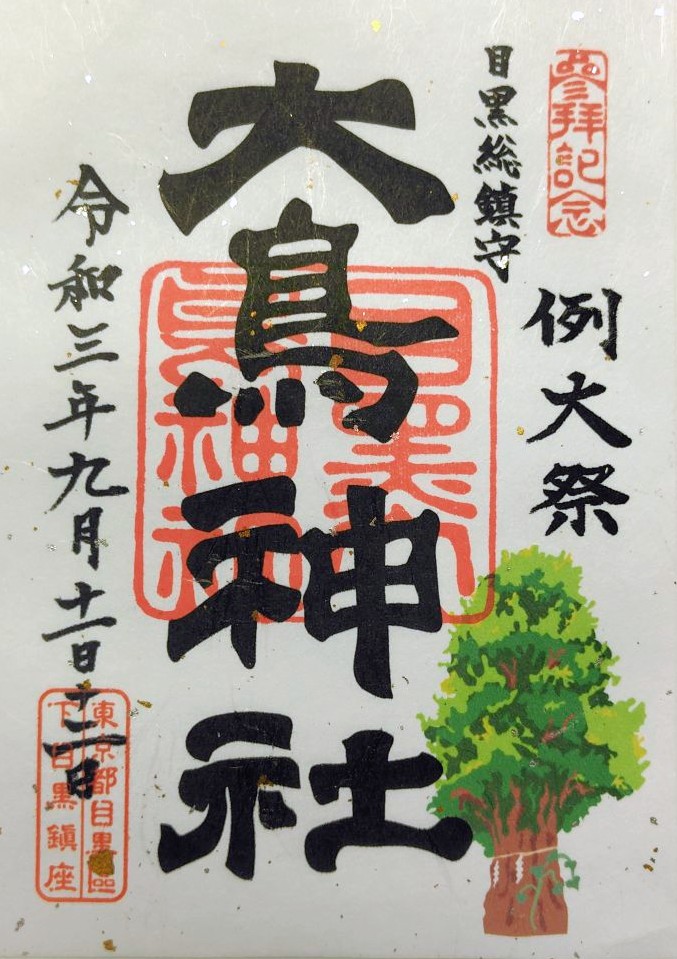 參拜記念
例大祭
目黒総鎮守
大鳥神社
目黒大
鳥神社
令和三年九月十一日十二日
東京都目黒區
下目黒鎮座